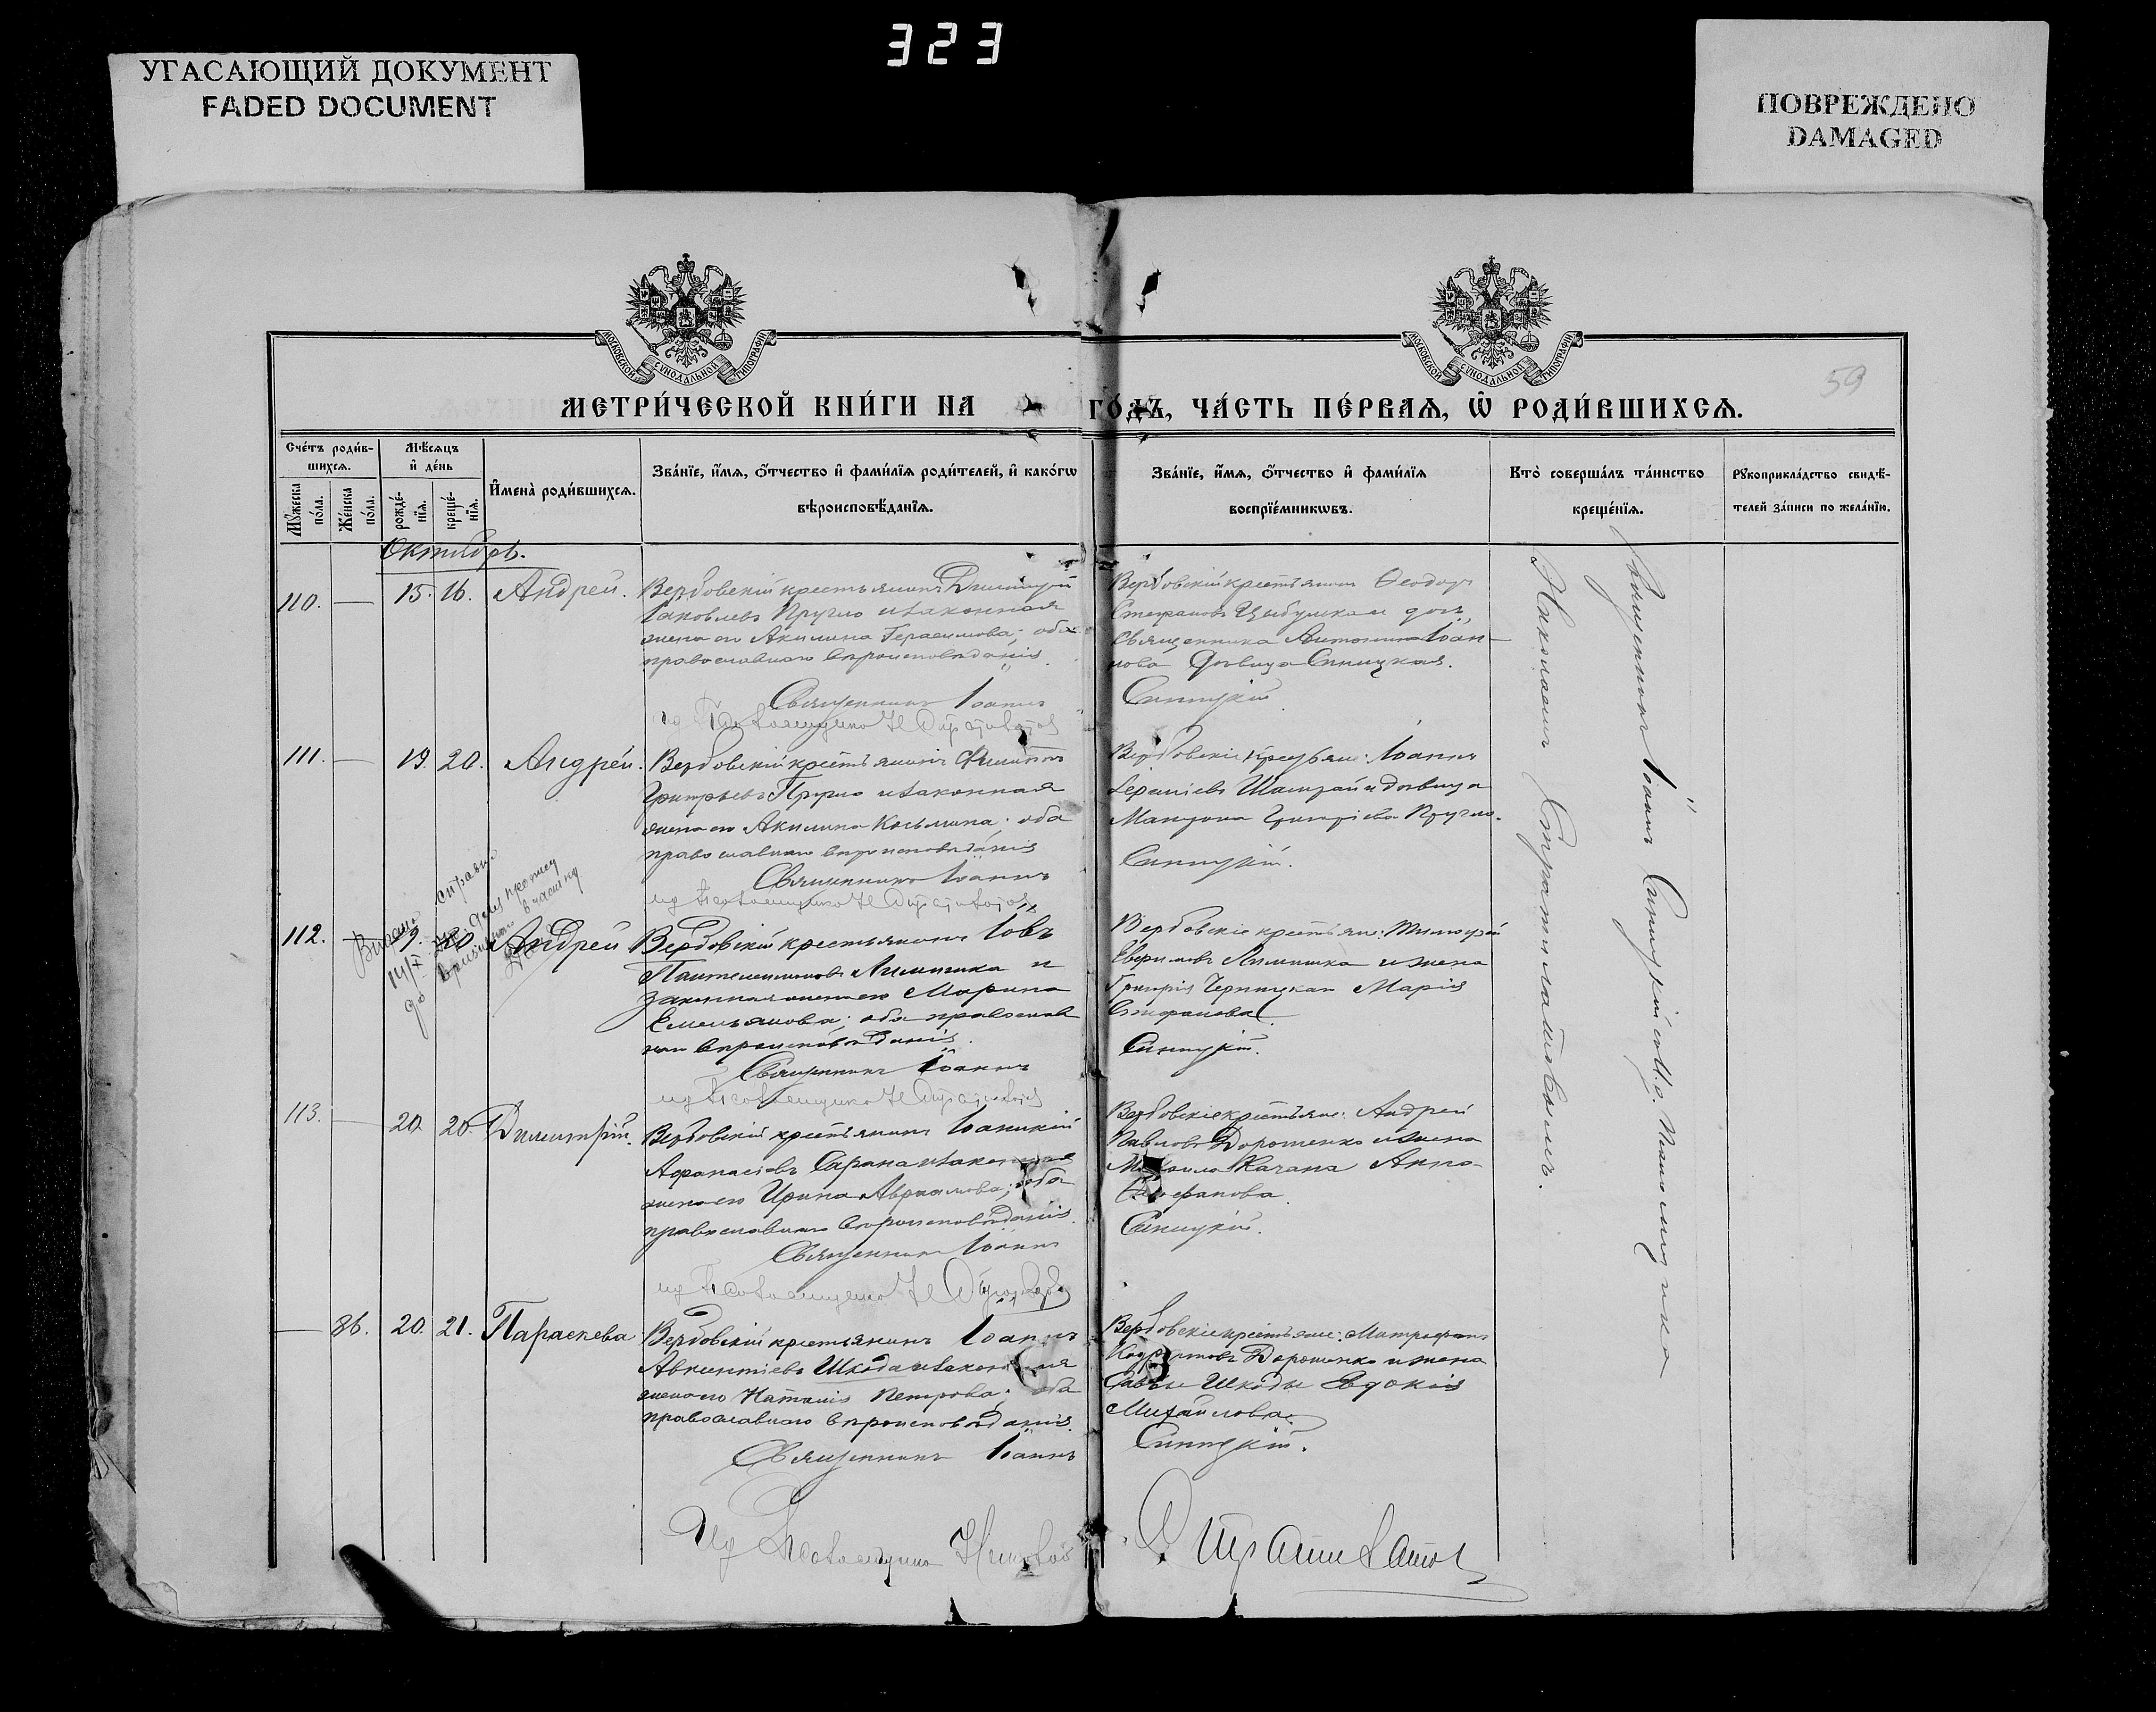 323
УГАСАЮЩИЙ ДОКУМЕНТ
FADED DOCUMENT
ПОВРЕЖДЕНО
DAMAGED
МОСКОВСКОЙ СѴНОДАЛЬНОЙ ТИПОГРАФІИ
МОСКОВСКОЙ СѴНОДАЛЬНОЙ ТИПОГРАФІИ
59
МЕТРИ́ЧЕСКОЙ КНИ́ГИ НА ГО́ДЪ, ЧА́СТЬ ПЕ́РВАѦ, Ѡ҆ РОДИ́ВШИХСѦ.
Сче́тъ роди́в-
шихсѧ.
Мꙋ́жеска по́ла.
Же́нска по́ла.
Мѣ́сѧцъ
и҆ де́нь
рожде́-
нїѧ.
креще́-
нїѧ.
И҆мена̀ роди́вшихсѧ.
Зва́нїе, и҆́мѧ, ѻ҆́тчество и҆ фами́лїѧ роди́телей, и҆ како́гѡ
вѣроисповѣ́данїѧ.
Зва́нїе, и҆́мѧ, ѻ҆́тчество и҆ фами́лїѧ
воспрїе́мникѡвъ.
Кто̀ соверша́лъ та́инство
креще́нїѧ.
Рꙋкоприкла́дство свидѣ́-
телей за́писи по жела́нїю.
Октябрь.
110. — 15. 16. Андрей.
Вербовскій крестьянинъ Димитрій
Іаковлевъ Пругло и законная
жена его Акилина Герасимова; оба
православнаго вѣроисповѣданія.
Священникъ Іоаннъ
Вербовскій крестьянинъ Ѳеодоръ
Стефановъ Цыбулька и дочь
священника Антонина Іоан-
нова дѣвица Синицкая.
Синицкій
111. — 19. 20. Андрей.
Вербовскій крестьянинъ Филиппъ
Григорьевъ Пругло и законная
жена его Акилина Косьмина; оба
православнаго вѣроисповѣданія
Священникъ Іоаннъ
Вербовскіе крестьяне: Іоаннъ
и дѣвица
Григоріева Пругло.
Синицкій.
112. — 19. 20. Андрей
Выдана справка
Вербовскій крестьянинъ Іовъ
Пантелеимоновъ Лимишка и
законная жена его Марина
Емельянова; оба православ
наго вѣроисповѣданія.
Священникъ Іоаннъ
Вербовскіе крестьяне: Тимофей
Евфимовъ Лимишка и жена
Григорія Марія
Стефанова.
Синицкій.
113. — 20. 20. Димитрій.
Вербовскій крестьянинъ Іоанникій
Аѳанасіевъ Сарана и законная
жена его Ирина Авраамова; оба
православнаго вѣроисповѣданія.
Священникъ Іоаннъ
Вербовскіе крестьяне: Андрей
Павловъ Дорошенко и жена
Михаила Качана Анна
Стефанова.
Синицкій.
— 86. 20. 21. Параскева
Вербовскій крестьянинъ Іоаннъ
Авксентіевъ Шкода и законная
жена его Наталія Петрова; оба
православнаго вѣроисповѣданія.
Священникъ Іоаннъ
Вербовскіе крестьяне: Митрофанъ
Дорошенко и жена
Саввы Шкоды Евдокія
Михайлова.
Синицкій.
Священникъ Іоаннъ Синицкій съ и. д. Псаломщика
Николаемъ Стратилатовымъ.
Ид Псаломщика Николай Стратилатов